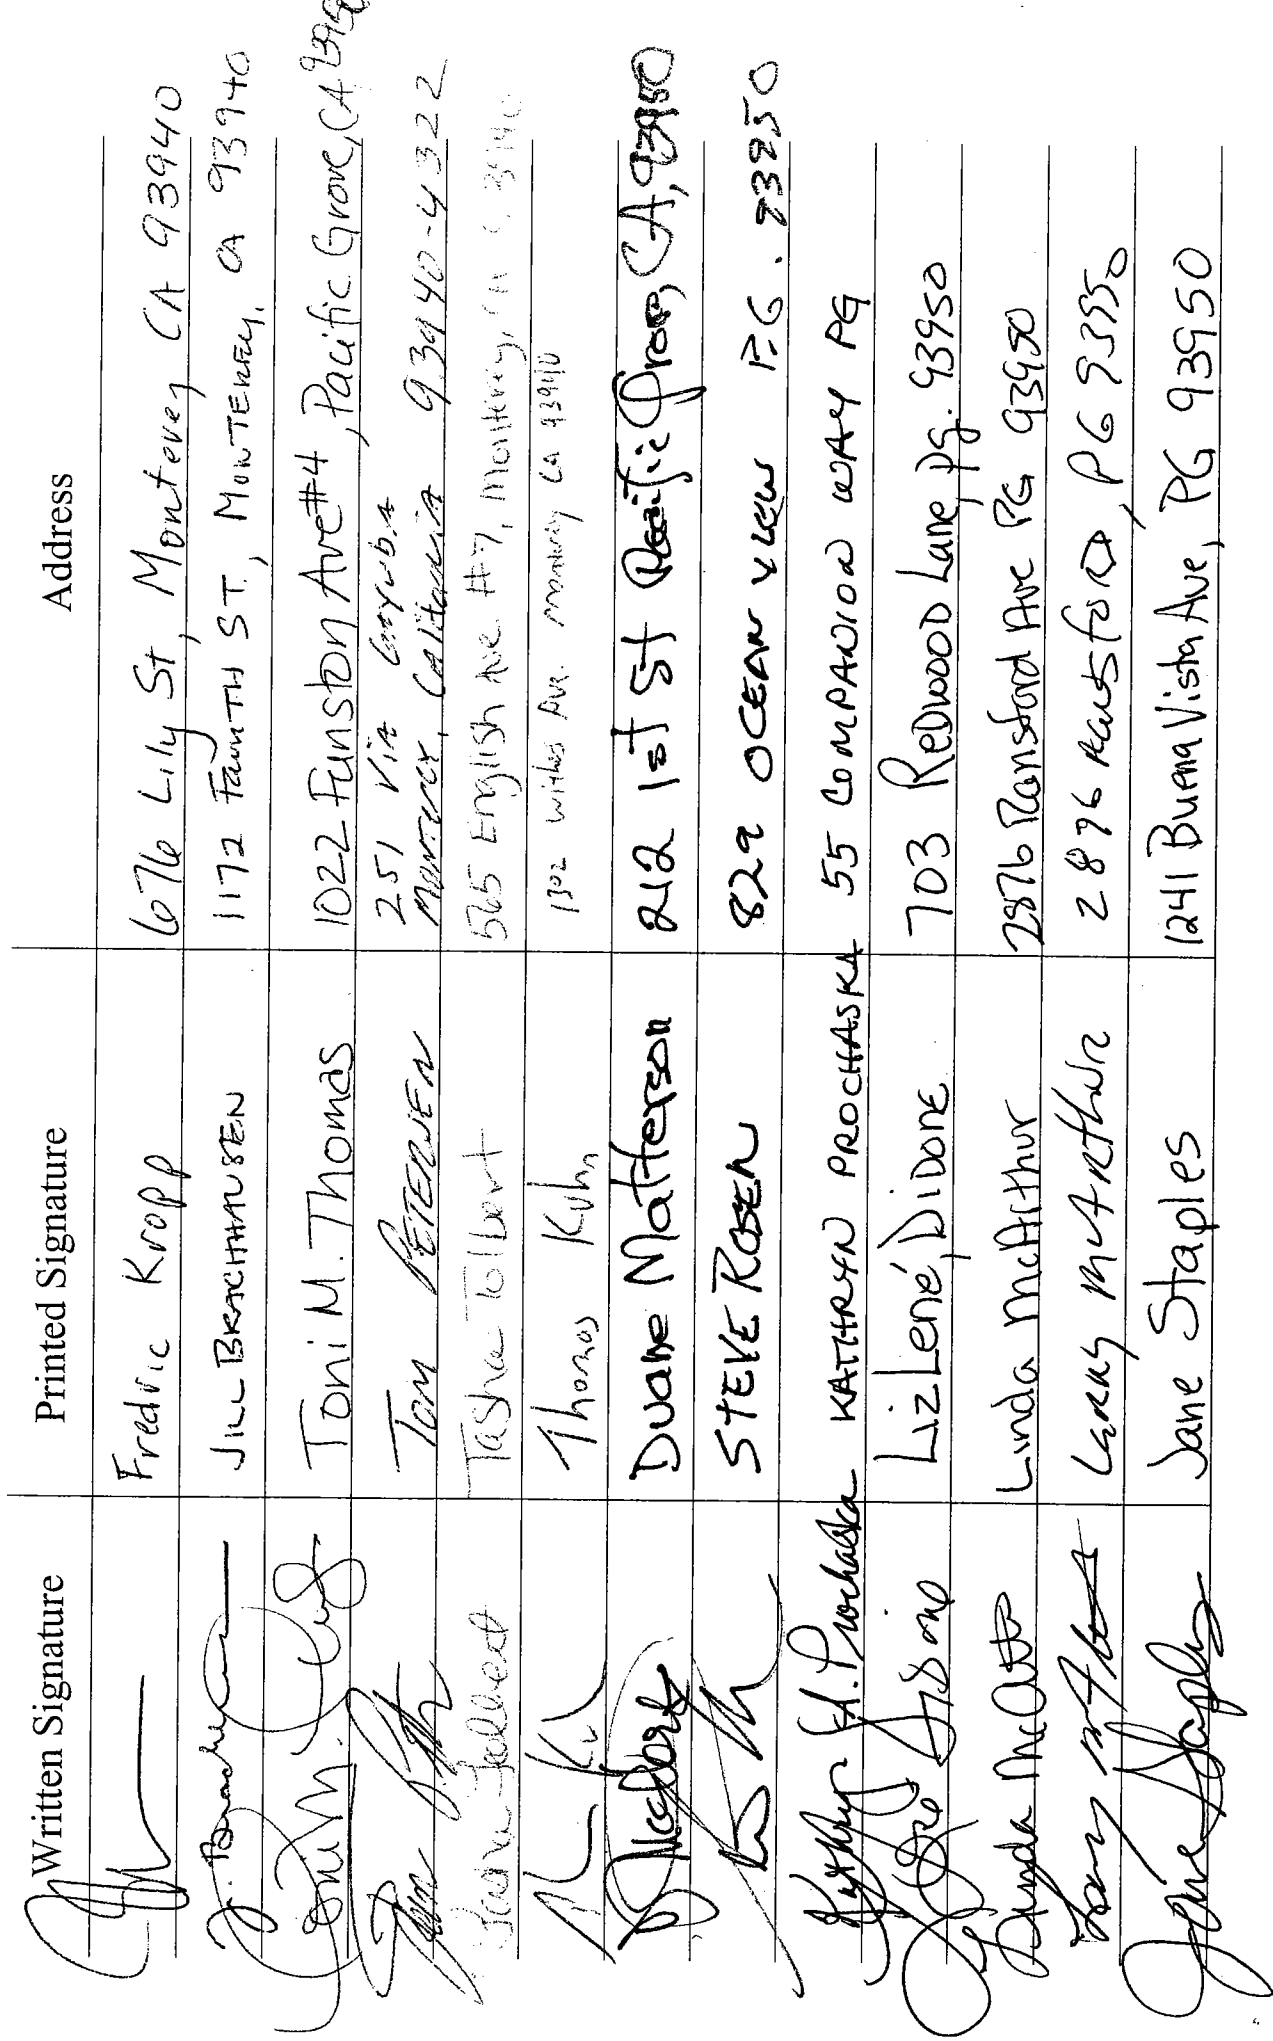 Written Signature Printed Signature Address
Fredric Kropp 676 Lily St, Monterey CA 93940
J. JILL BRACHHAUSEN 1172 FOURTH ST, MONTEREY, CA 93940
Toni M. Thomas 1022 Funston Ave #4, Pacific Grove, CA 93950
Tom PETERSEN 251 Via
Monterey, California 93940-4322
Tasha Tolbert Tasha Tolbert 565 English Ave #7, Monterey, CA
Thomas Kuhn 1302 Ave. Monterey CA 93940
Duane Matterson 212 1st St Pacific Grove, CA, 93950
STEVE ROSEN 829 OCEAN VIEW P.G. 93950
Kathryn H. Prochaska KATHRYN PROCHASKA 55 COMPANION WAY PG
Liz Lené, DiDONE 703 REDWOOD Lane, pg. 93950
Linda McArthur Linda McArthur 2876 Ransford Ave PG 93950
Larry McArthur 2876 Ransford, PG 93950
Jane Staples Jane Staples 1241 Buena Vista Ave, PG 93950